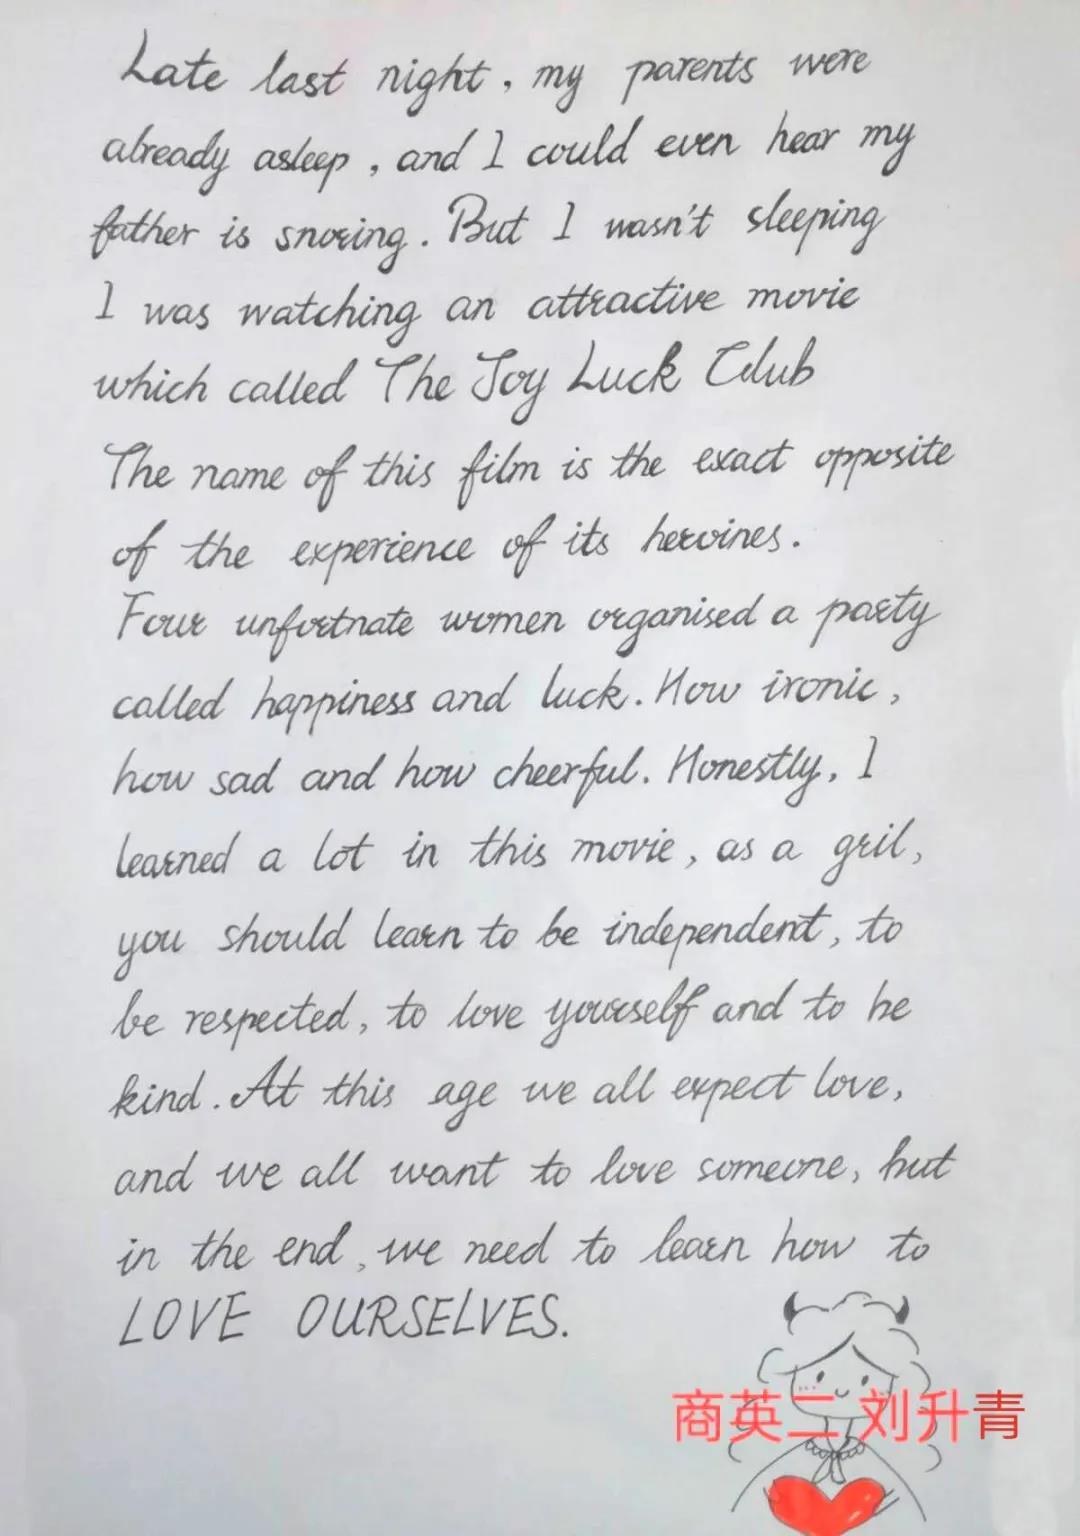 Late last night, my parents were
already asleep, and I could even hear my
father is snoring. But I wasn't sleeping
I was watching an attractive movie
which called The Joy Luck Club
The name of this film is the exact opposite
of the experience of its heroines.
Four unfortnate women organised a party
called happiness and luck. How ironic,
how sad and how cheerful. Honestly, I
learned a lot in this movie, as a gril,
you should learn to be independent, to
be respected, to love yourself and to be
kind. At this age we all expect love,
and we all want to love someone, but
in the end, we need to learn how to
LOVE OURSELVES.
商英二 刘升青